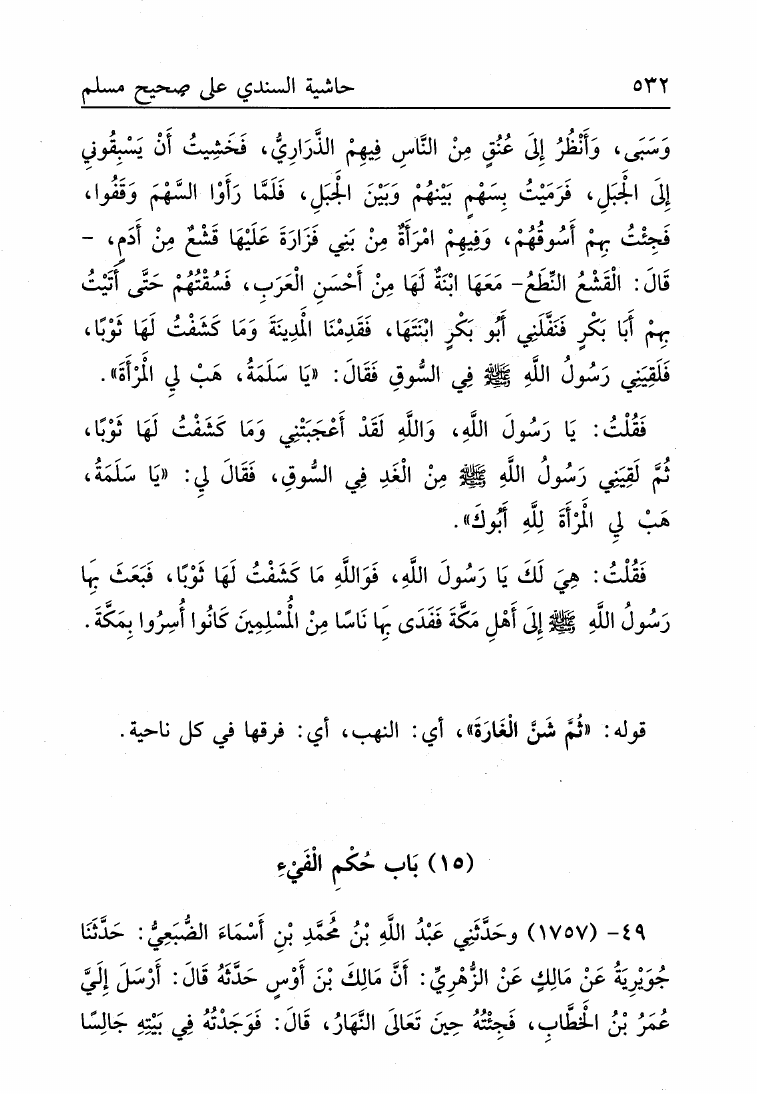 ٥٣٢ حاشية السندي على صحيح مسلم
وَسَبَى، وَأَنْظُرُ إِلَى عُنُقٍ مِنْ النَّاسِ فِيهِمْ الذَّرَارِيُّ، فَخَشِيتُ أَنْ يَسْبِقُونِي
إِلَى الْجَبَلِ، فَرَمَيْتُ بِسَهْمٍ بَيْنَهُمْ وَبَيْنَ الْجَبَلِ، فَلَمَّا رَأَوْا السَّهْمَ وَقَفُوا،
فَجِئْتُ بِهِمْ أَسُوقُهُمْ، وَفِيهِمْ امْرَأَةٌ مِنْ بَنِي فَزَارَةَ عَلَيْهَا قَشْعٌ مِنْ أَدَمٍ، –
قَالَ: الْقَشْعُ النِّطَعُ– مَعَهَا ابْنَةٌ لَهَا مِنْ أَحْسَنِ الْعَرَبِ، فَسُقْتُهُمْ حَتَّى أَتَيْتُ
بِهِمْ أَبَا بَكْرٍ فَنَفَّلَنِي أَبُو بَكْرٍ ابْنَتَهَا، فَقَدِمْنَا الْمَدِينَةَ وَمَا كَشَفْتُ لَهَا ثَوْبًا،
فَلَقِيَنِي رَسُولُ اللَّهِ ﷺ فِي السُّوقِ فَقَالَ: «يَا سَلَمَةُ، هَبْ لِي الْمَرْأَةَ».
فَقُلْتُ: يَا رَسُولَ اللَّهِ، وَاللَّهِ لَقَدْ أَعْجَبَتْنِي وَمَا كَشَفْتُ لَهَا ثَوْبًا،
ثُمَّ لَقِيَنِي رَسُولُ اللَّهِ ﷺ مِنْ الْغَدِ فِي السُّوقِ، فَقَالَ لِي: «يَا سَلَمَةُ،
هَبْ لِي الْمَرْأَةَ لِلَّهِ أَبُوكَ».
فَقُلْتُ: هِيَ لَكَ يَا رَسُولَ اللَّهِ، فَوَاللَّهِ مَا كَشَفْتُ لَهَا ثَوْبًا، فَبَعَثَ بِهَا
رَسُولُ اللَّهِ ﷺ إِلَى أَهْلِ مَكَّةَ فَفَدَى بِهَا نَاسًا مِنْ الْمُسْلِمِينَ كَانُوا أُسِرُوا بِمَكَّةَ.
قوله: «ثُمَّ شَنَّ الْغَارَةَ»، أي: النهب، أي: فرقها في كل ناحية.
(١٥) بَاب حُكْمِ الْفَيْءِ
٤٩– (١٧٥٧) وحَدَّثَنِي عَبْدُ اللَّهِ بْنُ مُحَمَّدِ بْنِ أَسْمَاءَ الضُّبَعِيُّ: حَدَّثَنَا
جُوَيْرِيَةُ عَنْ مَالِكٍ عَنْ الزُّهْرِيِّ: أَنَّ مَالِكَ بْنَ أَوْسٍ حَدَّثَهُ قَالَ: أَرْسَلَ إِلَيَّ
عُمَرُ بْنُ الْخَطَّابِ، فَجِئْتُهُ حِينَ تَعَالَى النَّهَارُ، قَالَ: فَوَجَدْتُهُ فِي بَيْتِهِ جَالِسًا